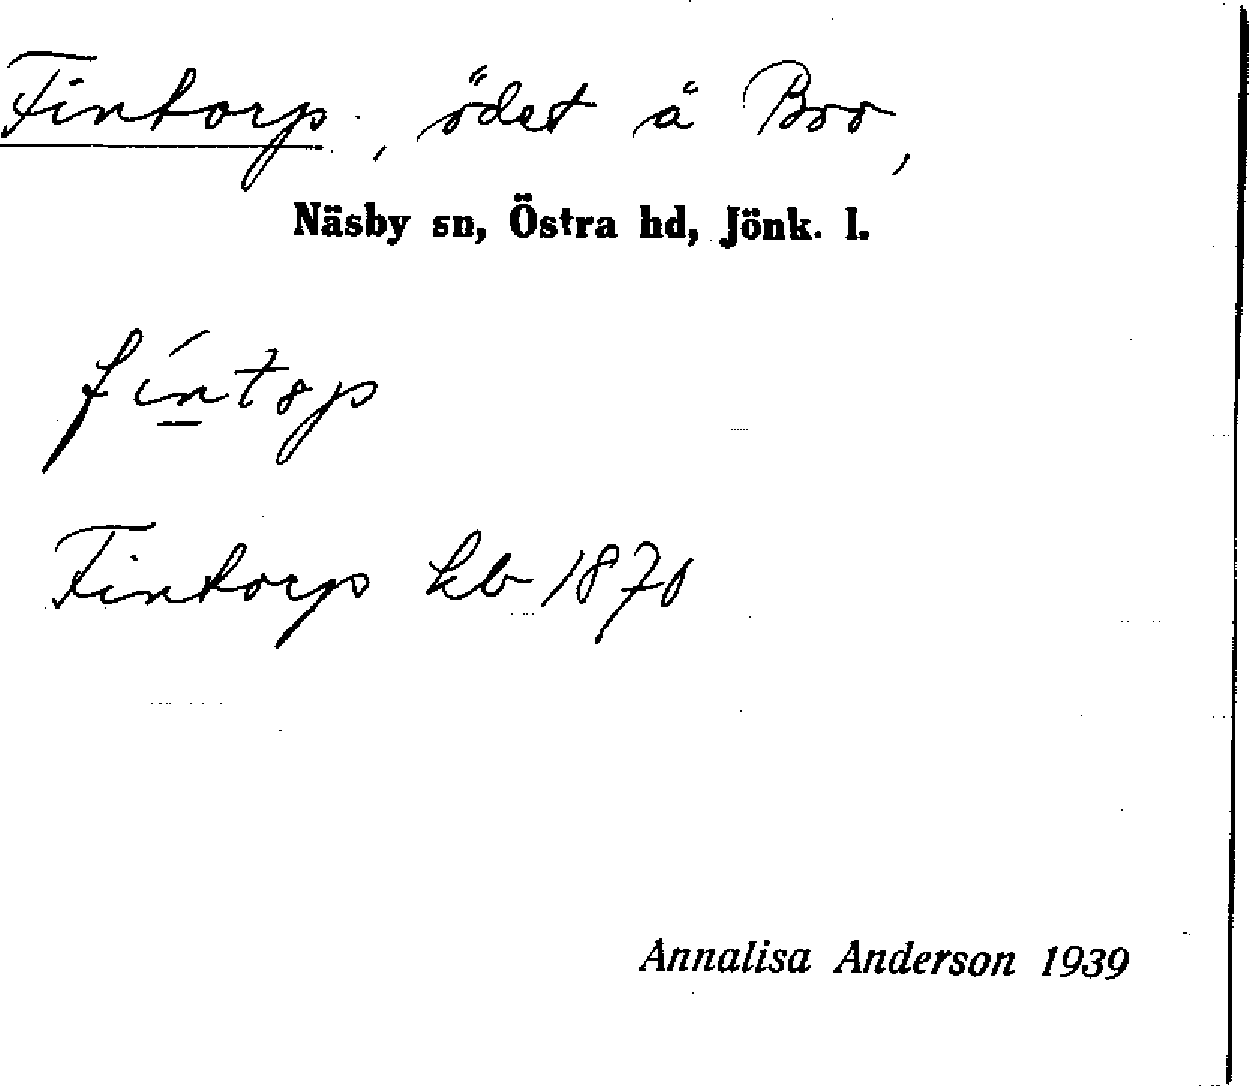 Fintorp, ödet å Boo,
Näsby sn, Östra hd, Jönk. l.
fíntǝp
Fintorp kb 1870
Annalisa Anderson 1939